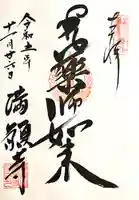 奉拝
薬師如来
令和五年
十一月廿六日
満願寺